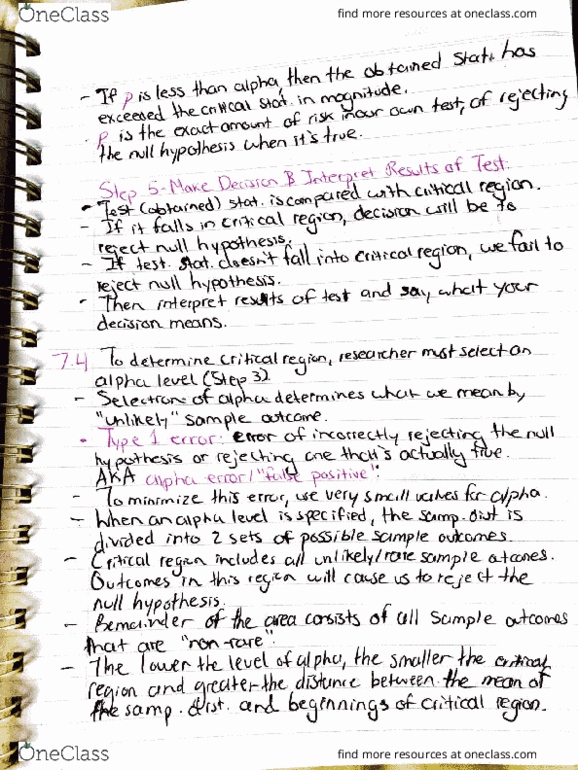 OneClass
find more resources at oneclass.com
- If p is less than alpha, then the obtained stat. has
exceeded the critical stat. in magnitude.
- p is the exact amount of risk in our own test, of rejecting
the null hypothesis when it's true.
Step 5 - Make Decision & Interpret Results of Test:
- Test (obtained) stat. is compared with critical region.
- If it falls in critical region, decision will be to
reject null hypothesis.
- If test. stat. doesn't fall into critical region, we fail to
reject null hypothesis.
- Then interpret results of test and say what your
decision means.
7.4 To determine critical region, researcher must select an
alpha level (Step 3)
- Selection of alpha determines what we mean by
"unlikely" sample outcome.
• Type 1 error: error of incorrectly rejecting the null
hypothesis or rejecting one that's actually true.
AKA alpha error/"false positive".
- To minimize this error, use very small values for alpha.
- When an alpha level is specified, the samp. dist is
divided into 2 sets of possible sample outcomes.
- Critical region includes all unlikely/rare sample otcomes.
Outcomes in this region will cause us to reject the
null hypothesis.
- Remainder of the area consists of all sample outcomes
that are "non-rare".
- The lower the level of alpha, the smaller the critical
region and greater the distance between the mean of
the samp. dist. and beginnings of critical region.
OneClass
find more resources at oneclass.com